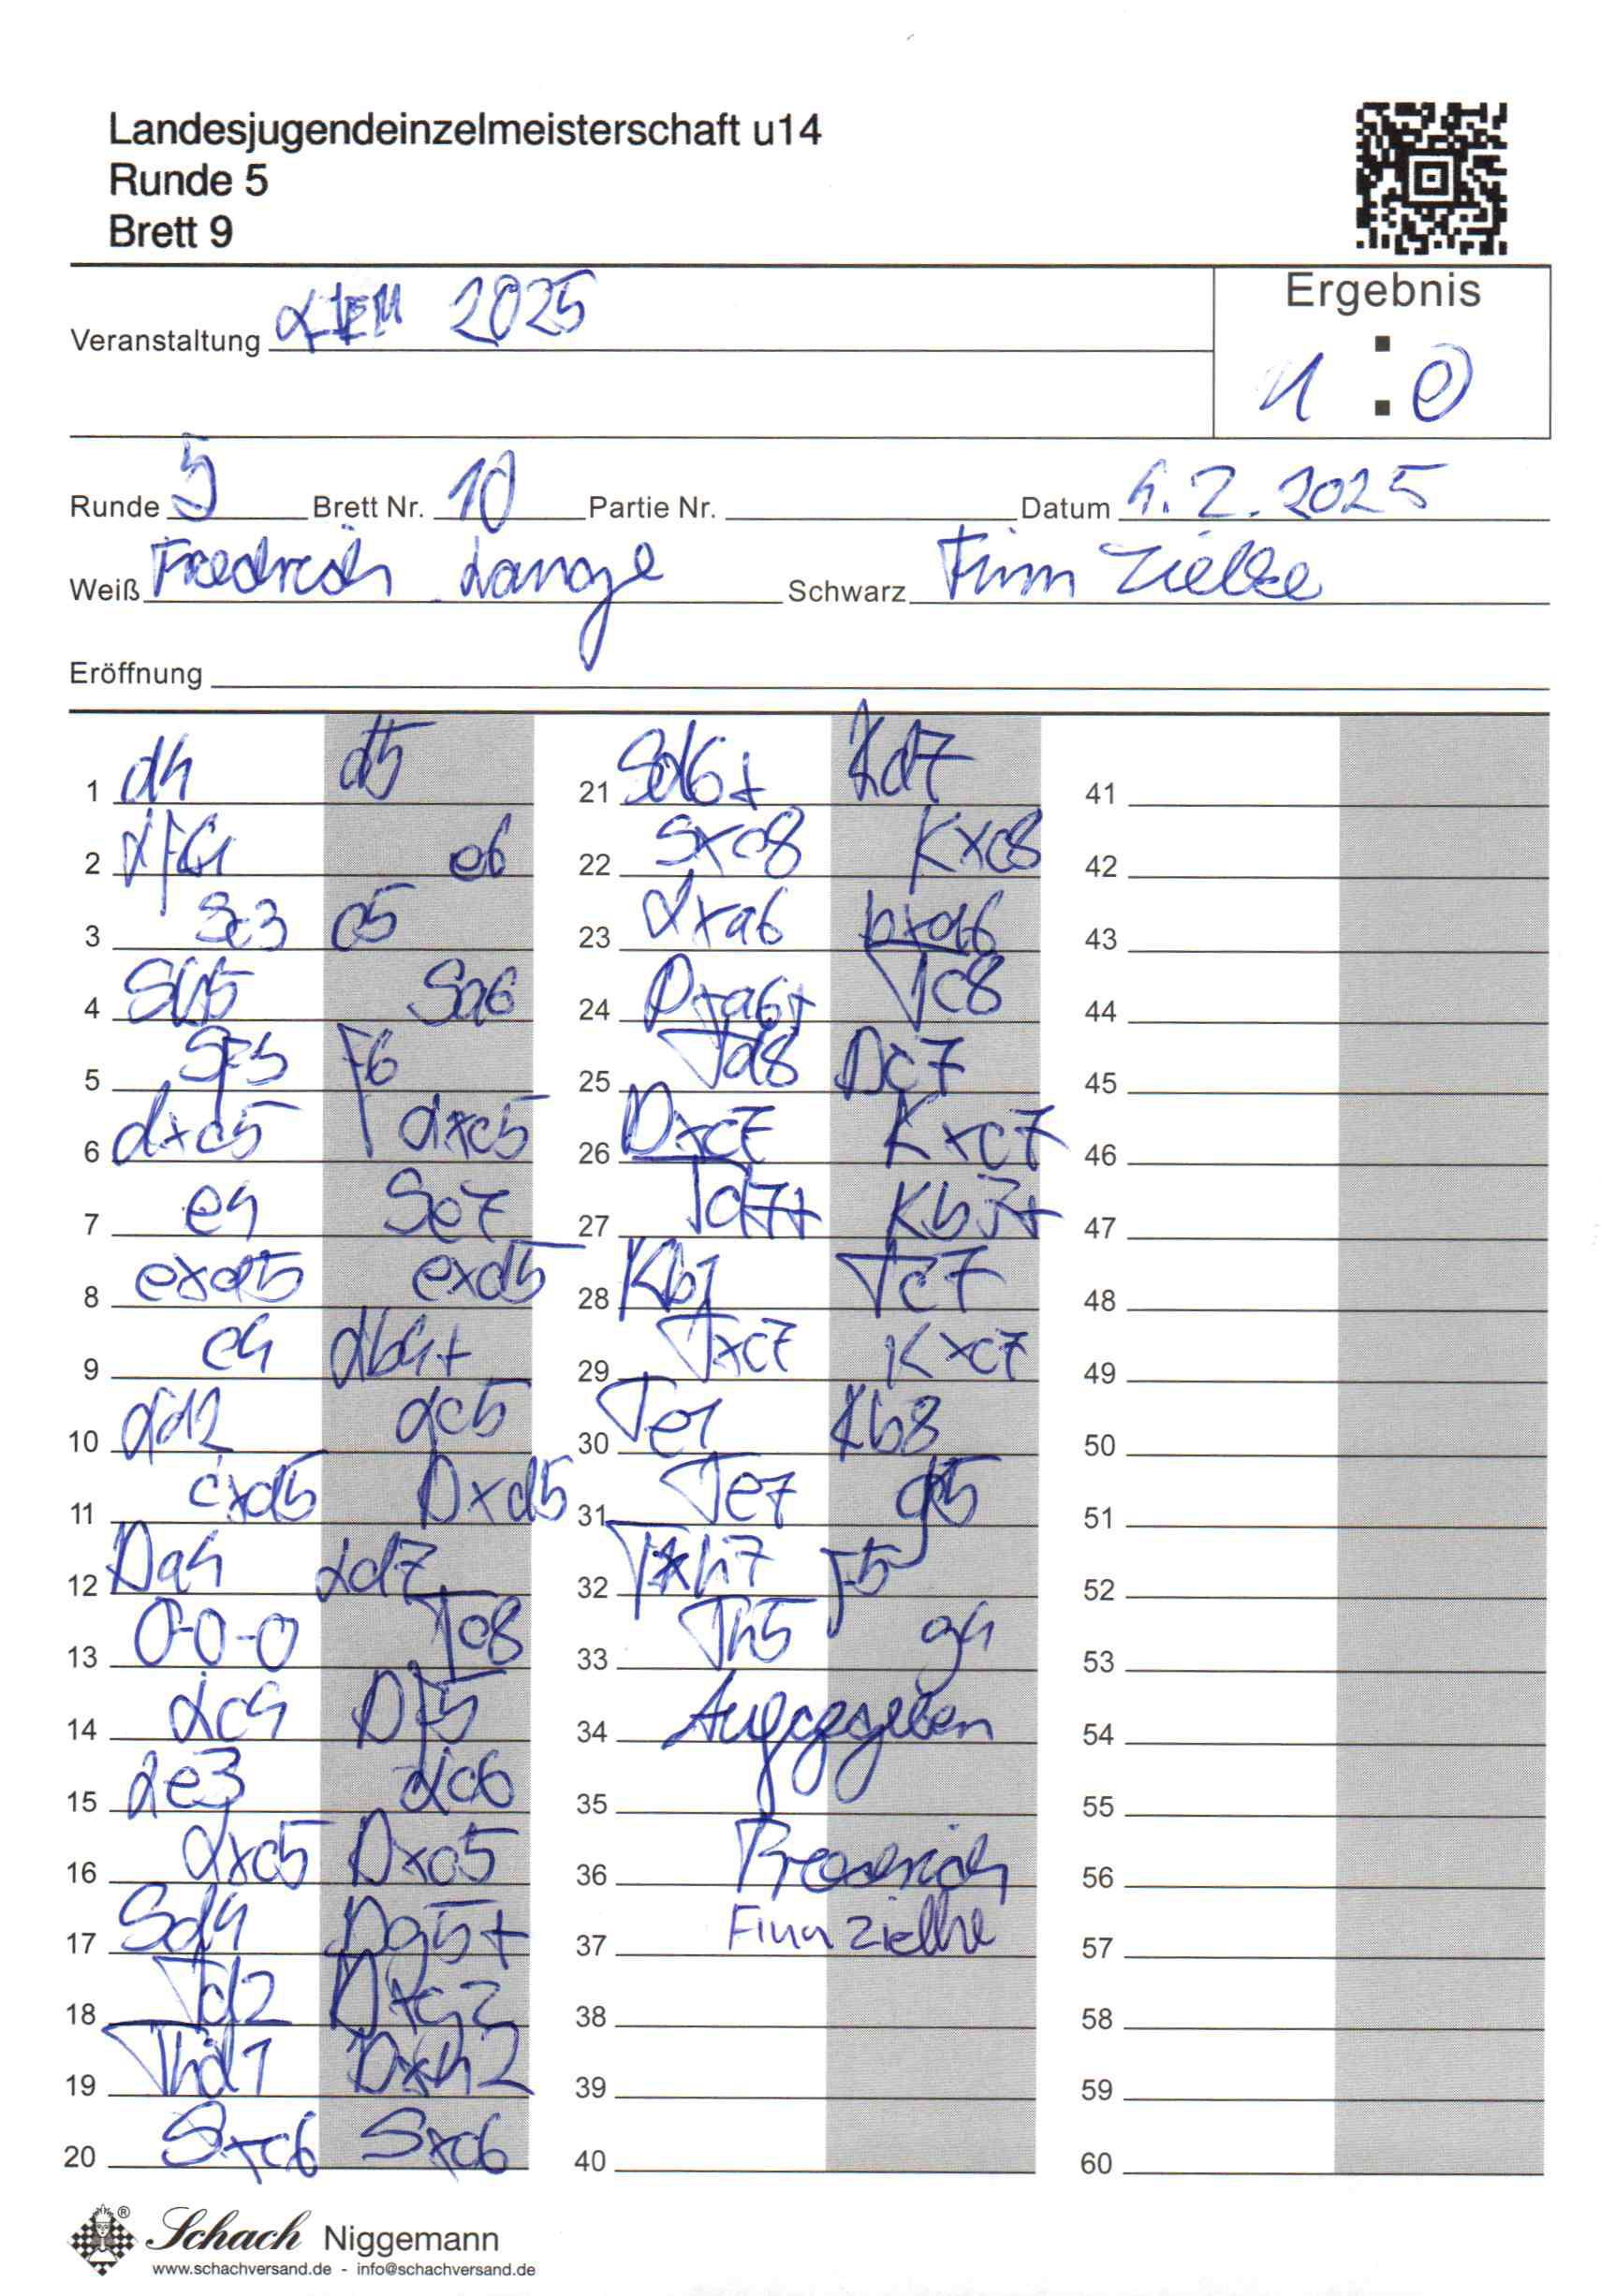 Landesjugendeinzelmeisterschaft u14
Runde 5
Brett 9
Ergebnis
Veranstaltung LJEM 2025
1 : 0
Runde 5 Brett Nr. 10 Partie Nr. Datum 4.2.2025
Weiß Friedrich Lange Schwarz Finn Zielke
Eröffnung
1 d4 d5
2 Lf4 e6
3 Sc3 c5
4 Sb5 Sa6
5 Sf3 f6
6 dxc5 Lxc5
7 e4 Se7
8 exd5 exd5
9 c4 Lb4+
10 Ld2 Lc5
11 cxd5 Dxd5
12 Da4 Ld7
13 0-0-0 Tc8
14 Lc4 Df5
15 Le3 Lc6
16 Lxc5 Dxc5
17 Sd4 Dg5+
18 Td2 Dxg2
19 Thd1 Dxh2
20 Sxc6 Sxc6
21 Sd6+ Kd7
22 Sxc8 Kxc8
23 Lxa6 bxa6
24 Dxa6+ Tc8
25 Td8 Dc7
26 Dxc7 Kxc7
27 Td7+ Kb8+
28 Kb1 Tc7
29 Txc7 Kxc7
30 Te1 Kb8
31 Te7 g5
32 Txh7 f5
33 Th5 g4
34 Aufgegeben
35
36 Friedrich
37 Finn Zielke
38
39
40
41
42
43
44
45
46
47
48
49
50
51
52
53
54
55
56
57
58
59
60
Schach Niggemann
www.schachversand.de - info@schachversand.de